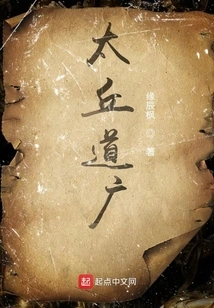 太丘道广
缘辰枫 著
起点 起点中文网